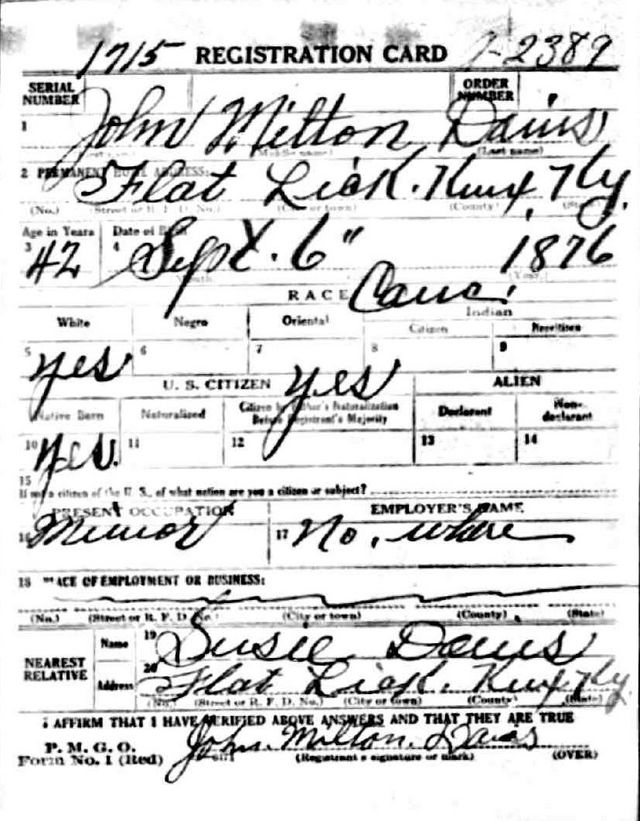 1715 REGISTRATION CARD 1-2389
SERIAL NUMBER
ORDER NUMBER
1 John Milton Davis
(Last name)
2 PERMANENT HOME ADDRESS:
Flat Lick. Knox, Ky.
(No.) (Street or R. F. D. No.) (City or town) (County) (State)
Age in Years Date of Birth
3 4
42 Sept. 6" 1876
(Year.)
RACE Cauc.
White Negro Oriental Indian
Citizen
5 yes 6 7 8 9
U. S. CITIZEN yes ALIEN
Native Born Naturalized Citizen by Father's Naturalization Before Registrant's Majority Declarant Non-declarant
10 yes. 11 12 13 14
15
If not a citizen of the U. S., of what nation are you a citizen or subject?
PRESENT OCCUPATION EMPLOYER'S NAME
16 Minor 17 No. where
18 PLACE OF EMPLOYMENT OR BUSINESS:
(No.) (Street or R. F. D. No.) (City or town) (County) (State)
NEAREST RELATIVE
Name 19 Susie Davis
Address 20 Flat Lick. Knox, Ky
(No.) (Street or R. F. D. No.) (City or town) (County) (State)
I AFFIRM THAT I HAVE VERIFIED ABOVE ANSWERS AND THAT THEY ARE TRUE
P. M. G. O.
Form No. 1 (Red) John. Milton. Davis
(Registrant's signature or mark) (OVER)